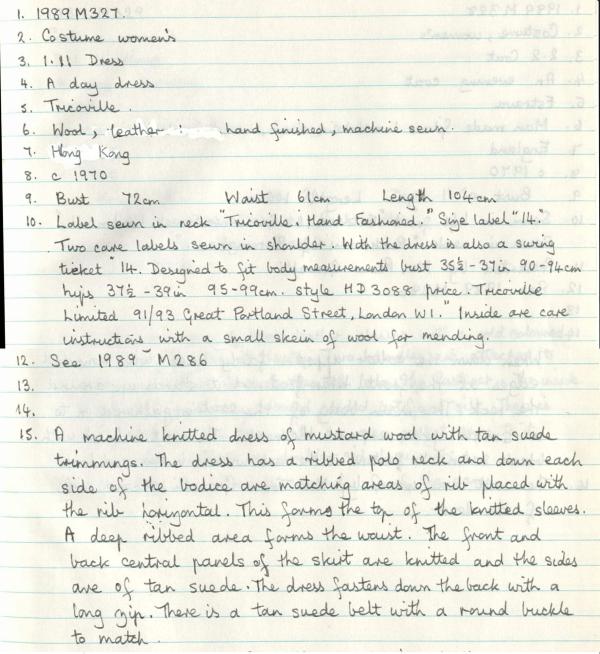 1. 1989 M327.
2. Costume women's
3. 1.11 Dress
4. A day dress
5. Tricoville.
6. Wool, leather : hand finished, machine sewn.
7. Hong Kong
8. c 1970
9. Bust 72cm Waist 61cm Length 104cm
10. Label sewn in neck "Tricoville. Hand Fashioned." Size label "14."
Two care labels sewn in shoulder. With the dress is also a swing
ticket "14. Designed to fit body measurements bust 35½-37in 90-94cm
hips 37½-39in 95-99cm. style HD3088 price. Tricoville
Limited 91/93 Great Portland Street, London W1." Inside are care
instructions with a small skein of wool for mending.
12. See 1989 M286
13.
14.
15. A machine knitted dress of mustard wool with tan suede
trimmings. The dress has a ribbed polo neck and down each
side of the bodice are matching areas of rib placed with
the rib horizontal. This forms the top of the knitted sleeves.
A deep ribbed area forms the waist. The front and
back central panels of the skirt are knitted and the sides
are of tan suede. The dress fastens down the back with a
long zip. There is a tan suede belt with a round buckle
to match.